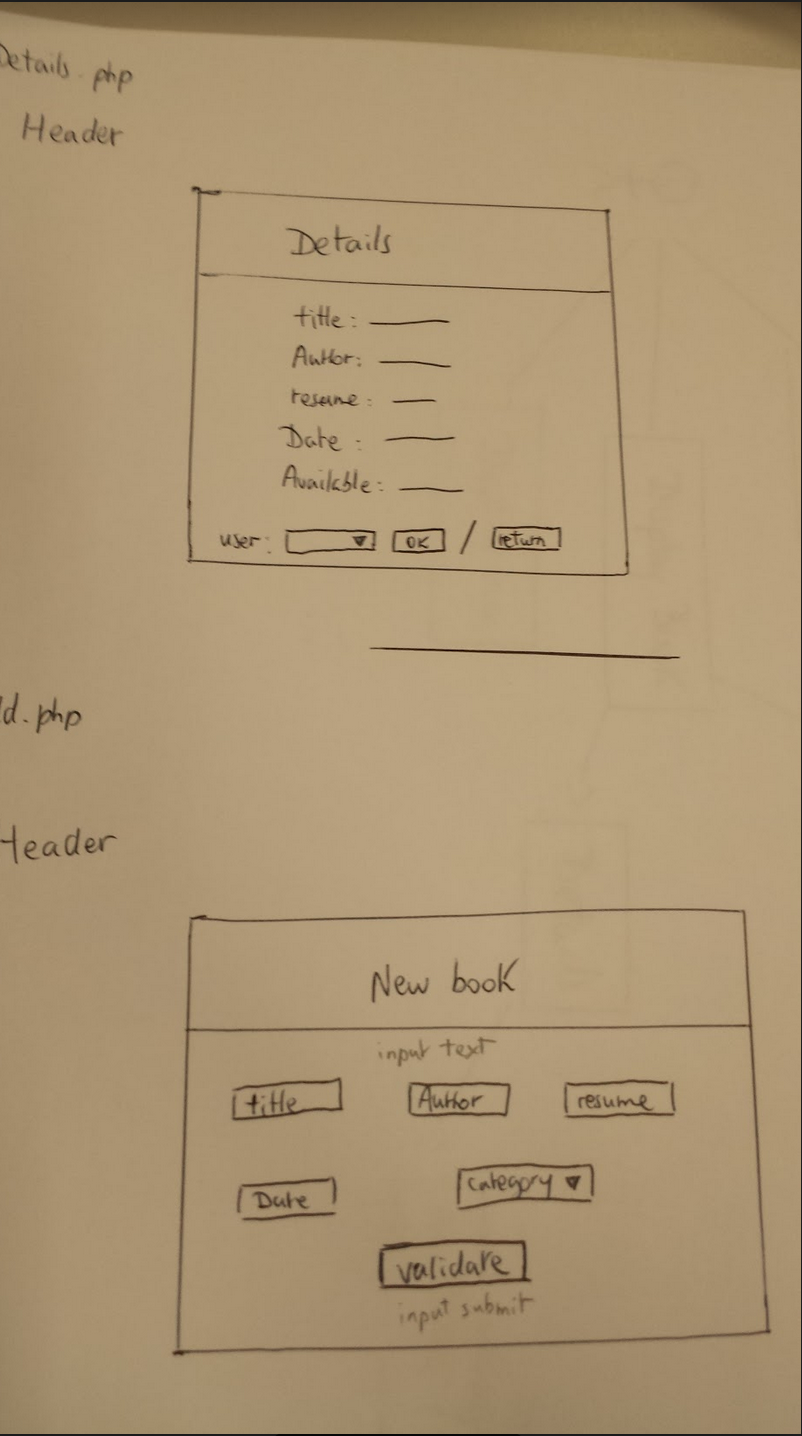 Details.php
Header
Details
title:
Author:
resume:
Date:
Available:
user: OK / return
d.php
Header
New book
input text
title Author resume
Date category
validate
input submit